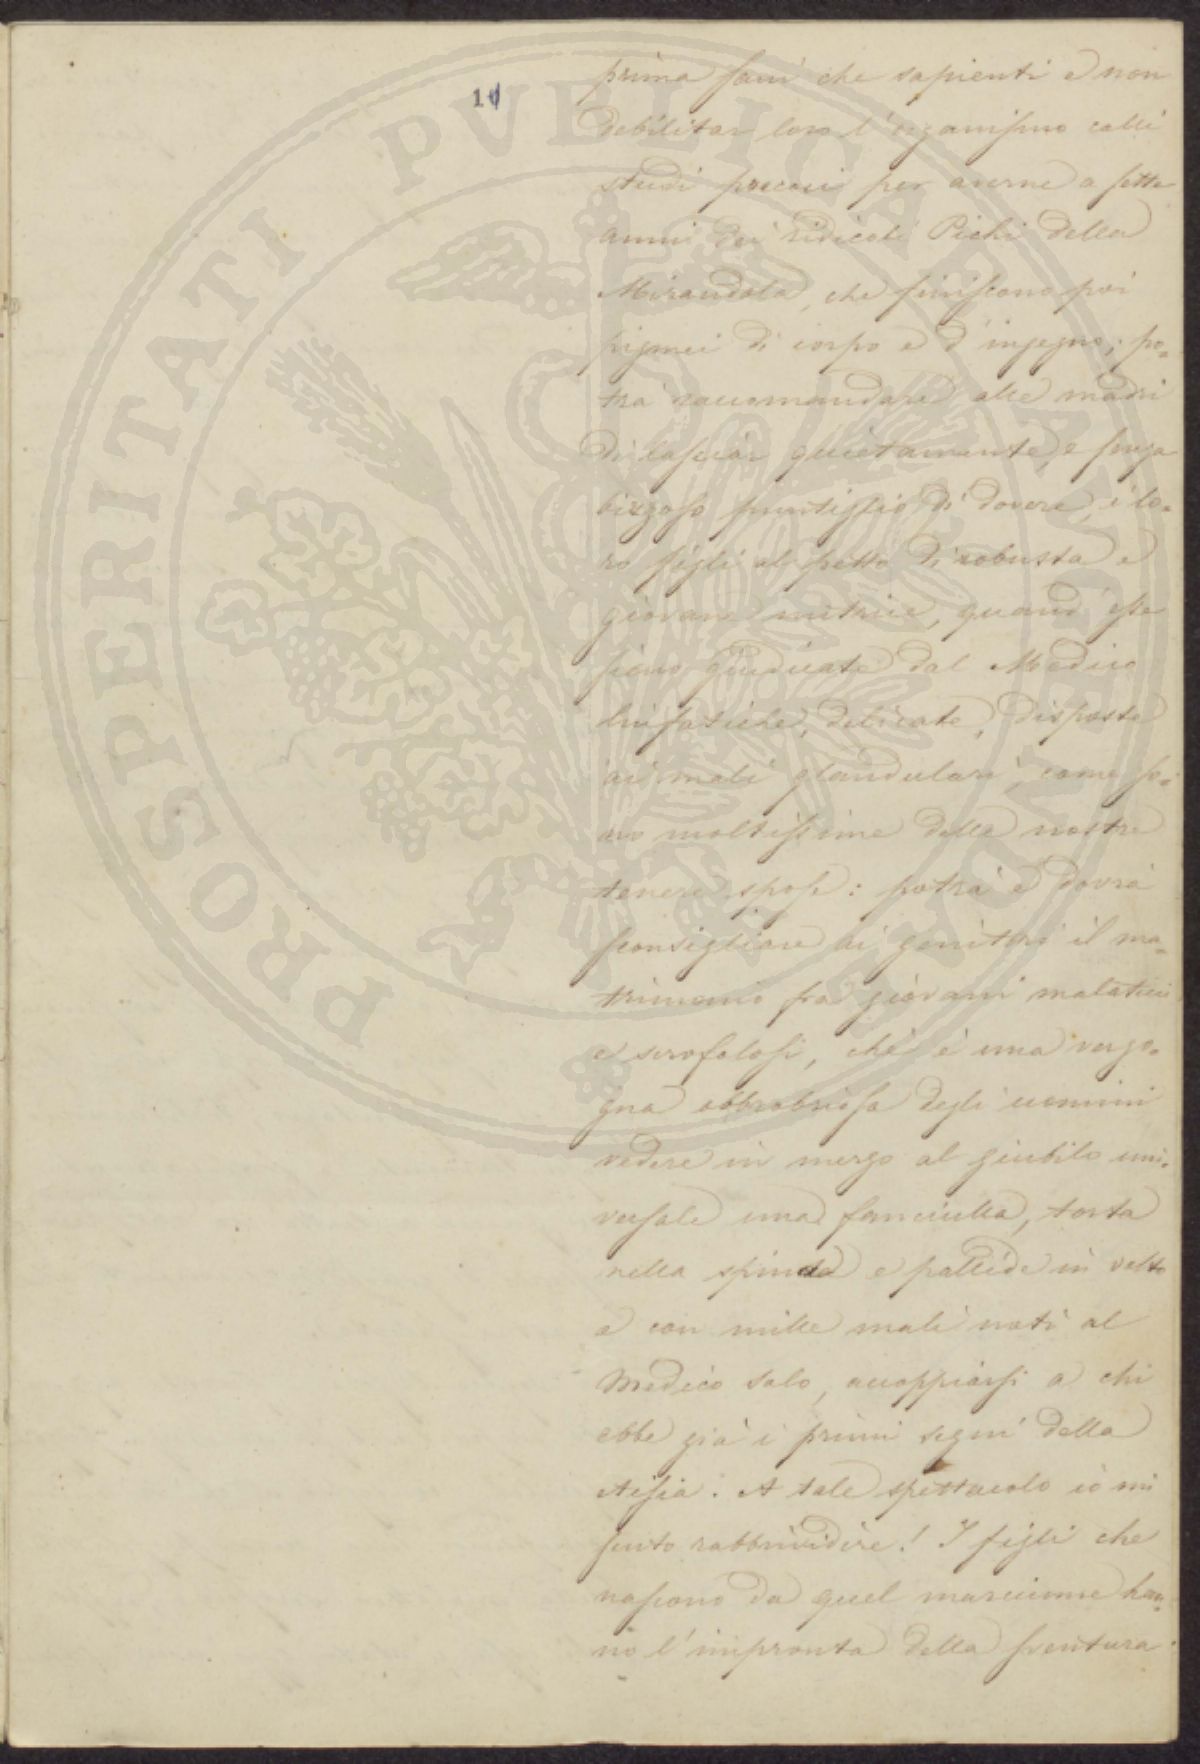 11
prima sani che sapienti e non
debilitar loro l'organismo colli
studi precoci per averne a sette
anni dei ridicoli Pichi della
Mirandola, che finiscono poi
pigmei di corpo e d'ingegno; po=
trà raccomandare alle madri
di lasciar quietamente, e senza
bizzoso puntiglio di dovere, i lo=
ro figli al petto di robusta e
giovane nutrice, quand'esse
sieno giudicate dal Medico
linfatiche, delicate, disposte
ai mali glandulari, come so=
no moltissime delle nostre
tenere spose: potrà e dovrà
sconsigliare ai genitori il ma=
trimonio fra giovani malaticci
e scrofolosi, chè è una vergo=
gna obbrobriosa degli uomini
vedere in mezzo al giubilo uni=
versale una fanciulla, torta
nella spina e pallida in volto
e con mille mali noti al
Medico solo, accoppiarsi a chi
ebbe già i primi segni della
tisia. A tale spettacolo io mi
sento rabbrividire! I figli che
nascono da quel marciume han=
no l'impronta della sventura
PROSPERITATI PVBLICAE